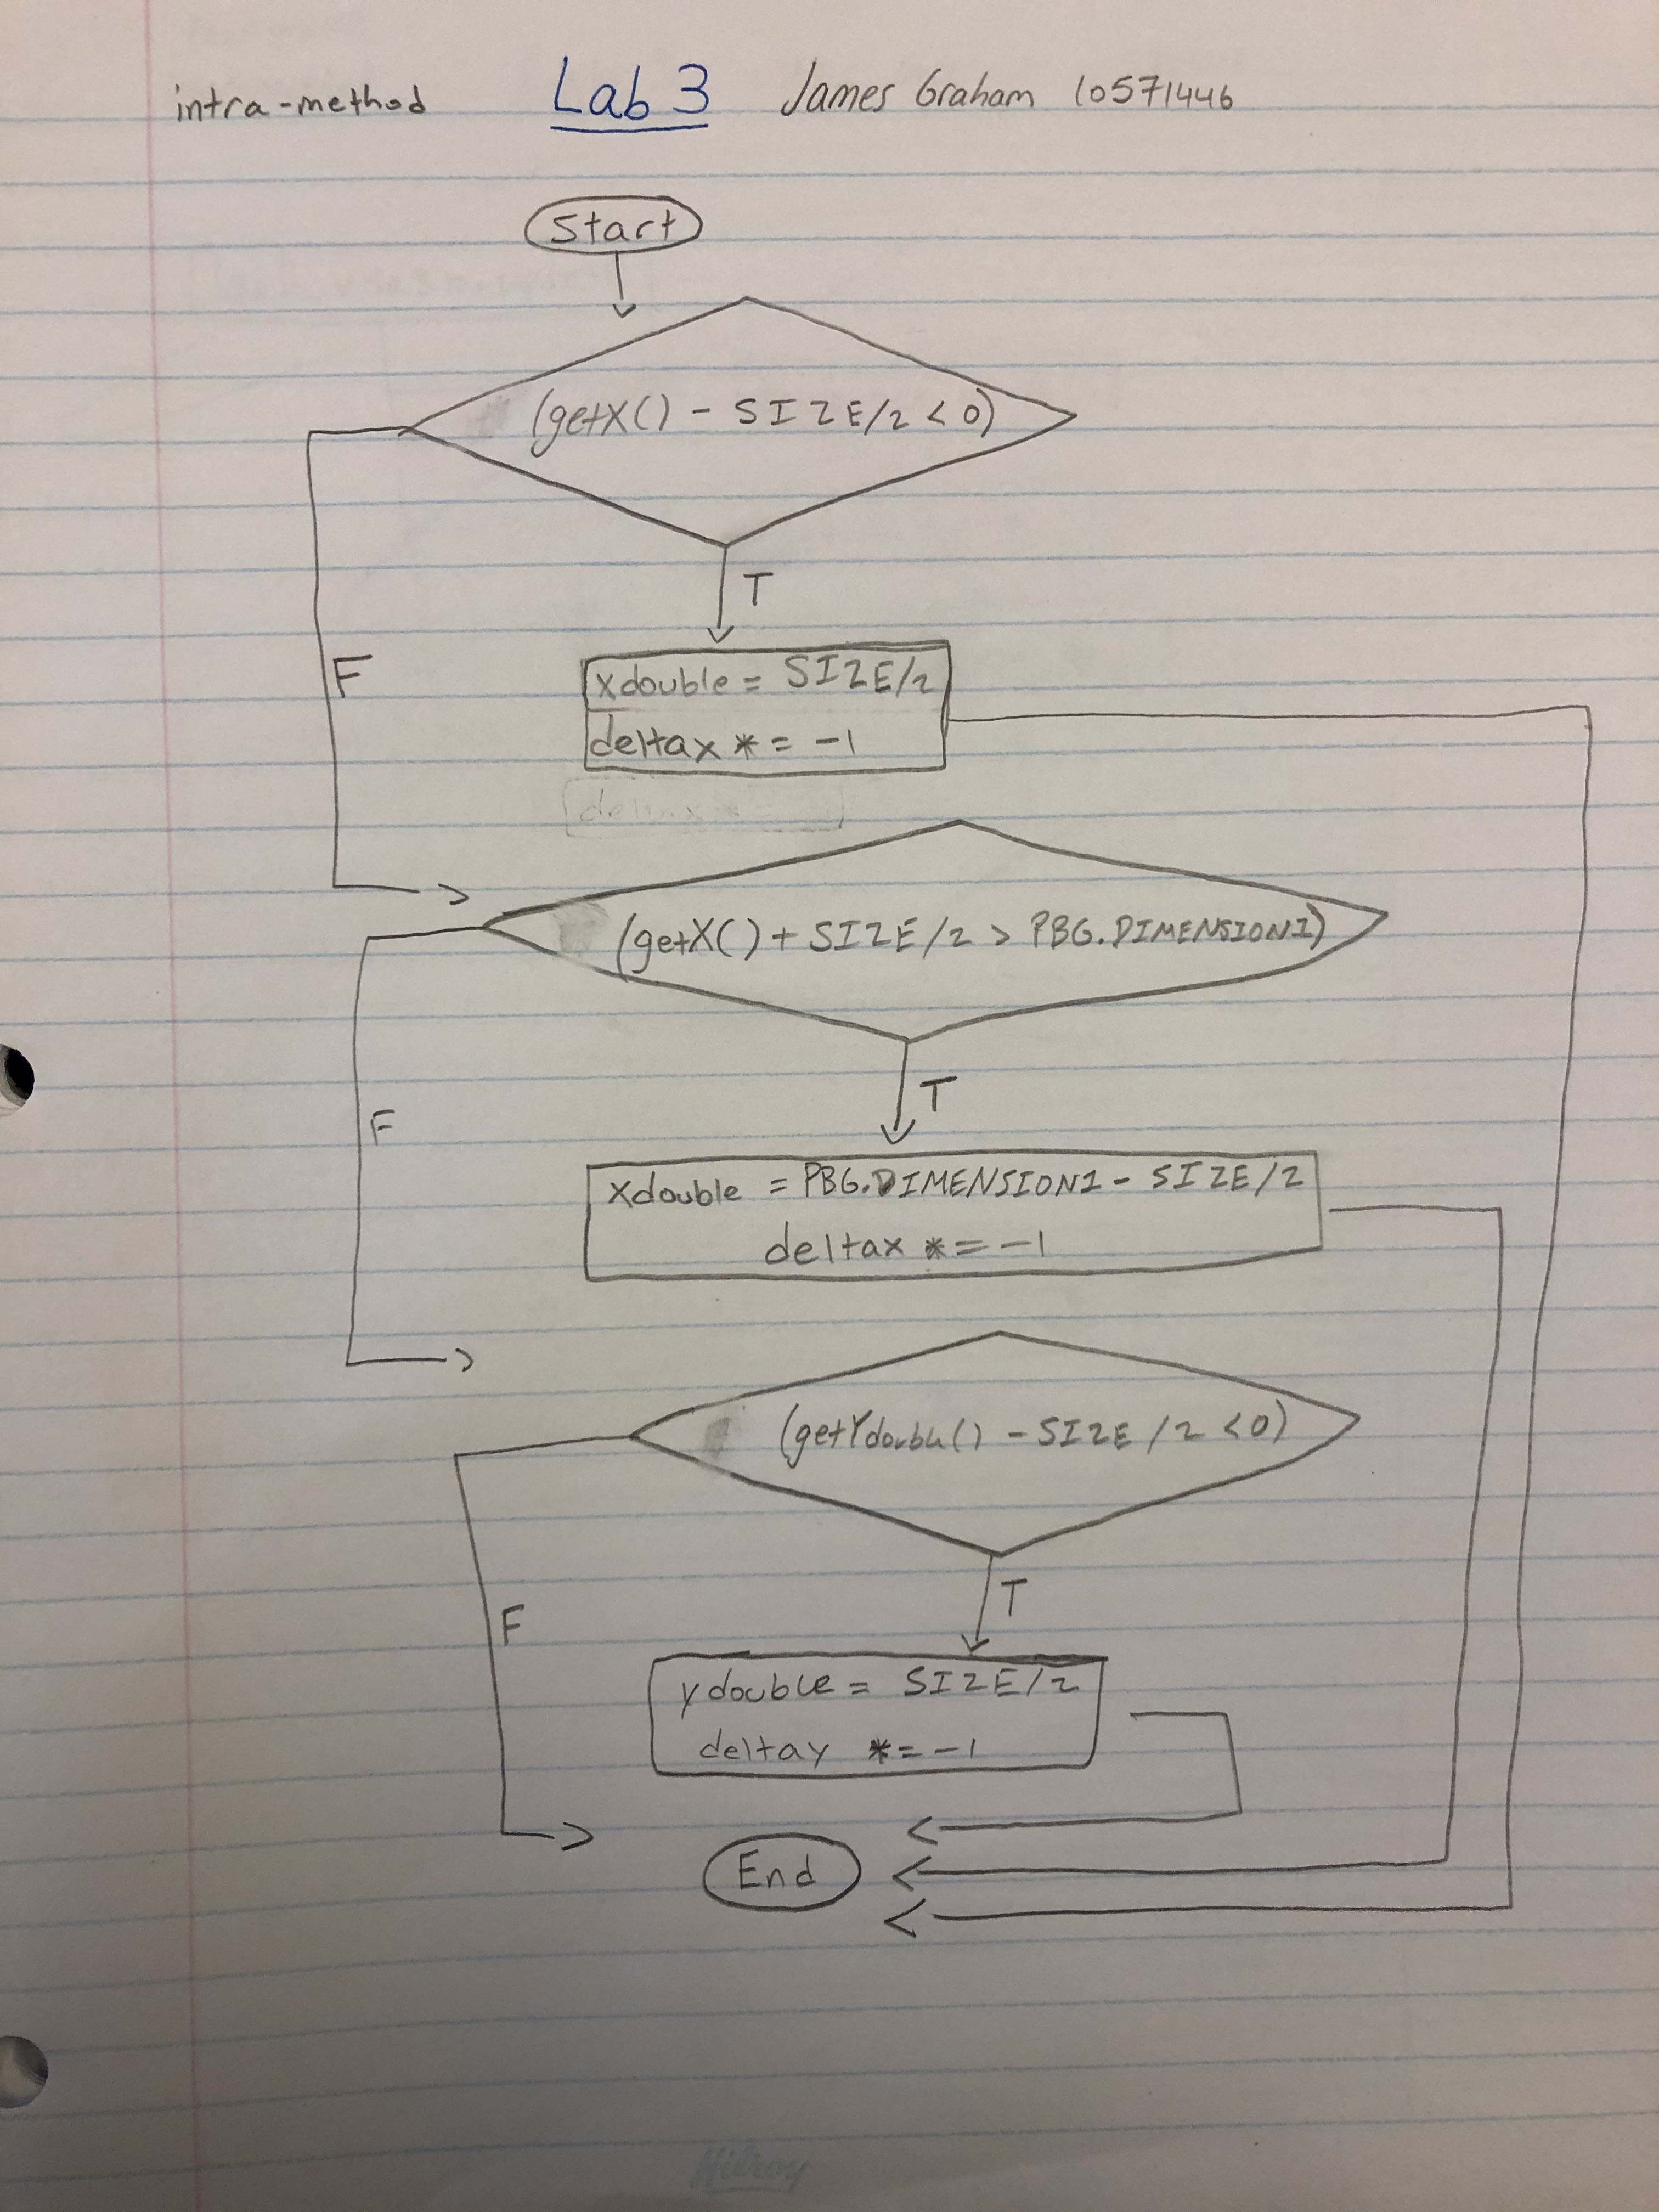 intra-method Lab 3 James Graham 10571446
Start
(getX() - SIZE/2 < 0)
T
F
xdouble = SIZE/2
deltax *= -1
(getX() + SIZE/2 > PBG.DIMENSION1)
T
F
xdouble = PBG.DIMENSION1 - SIZE/2
deltax *= -1
(getYdouble() - SIZE/2 < 0)
T
F
ydouble = SIZE/2
deltay *= -1
End
Hilroy